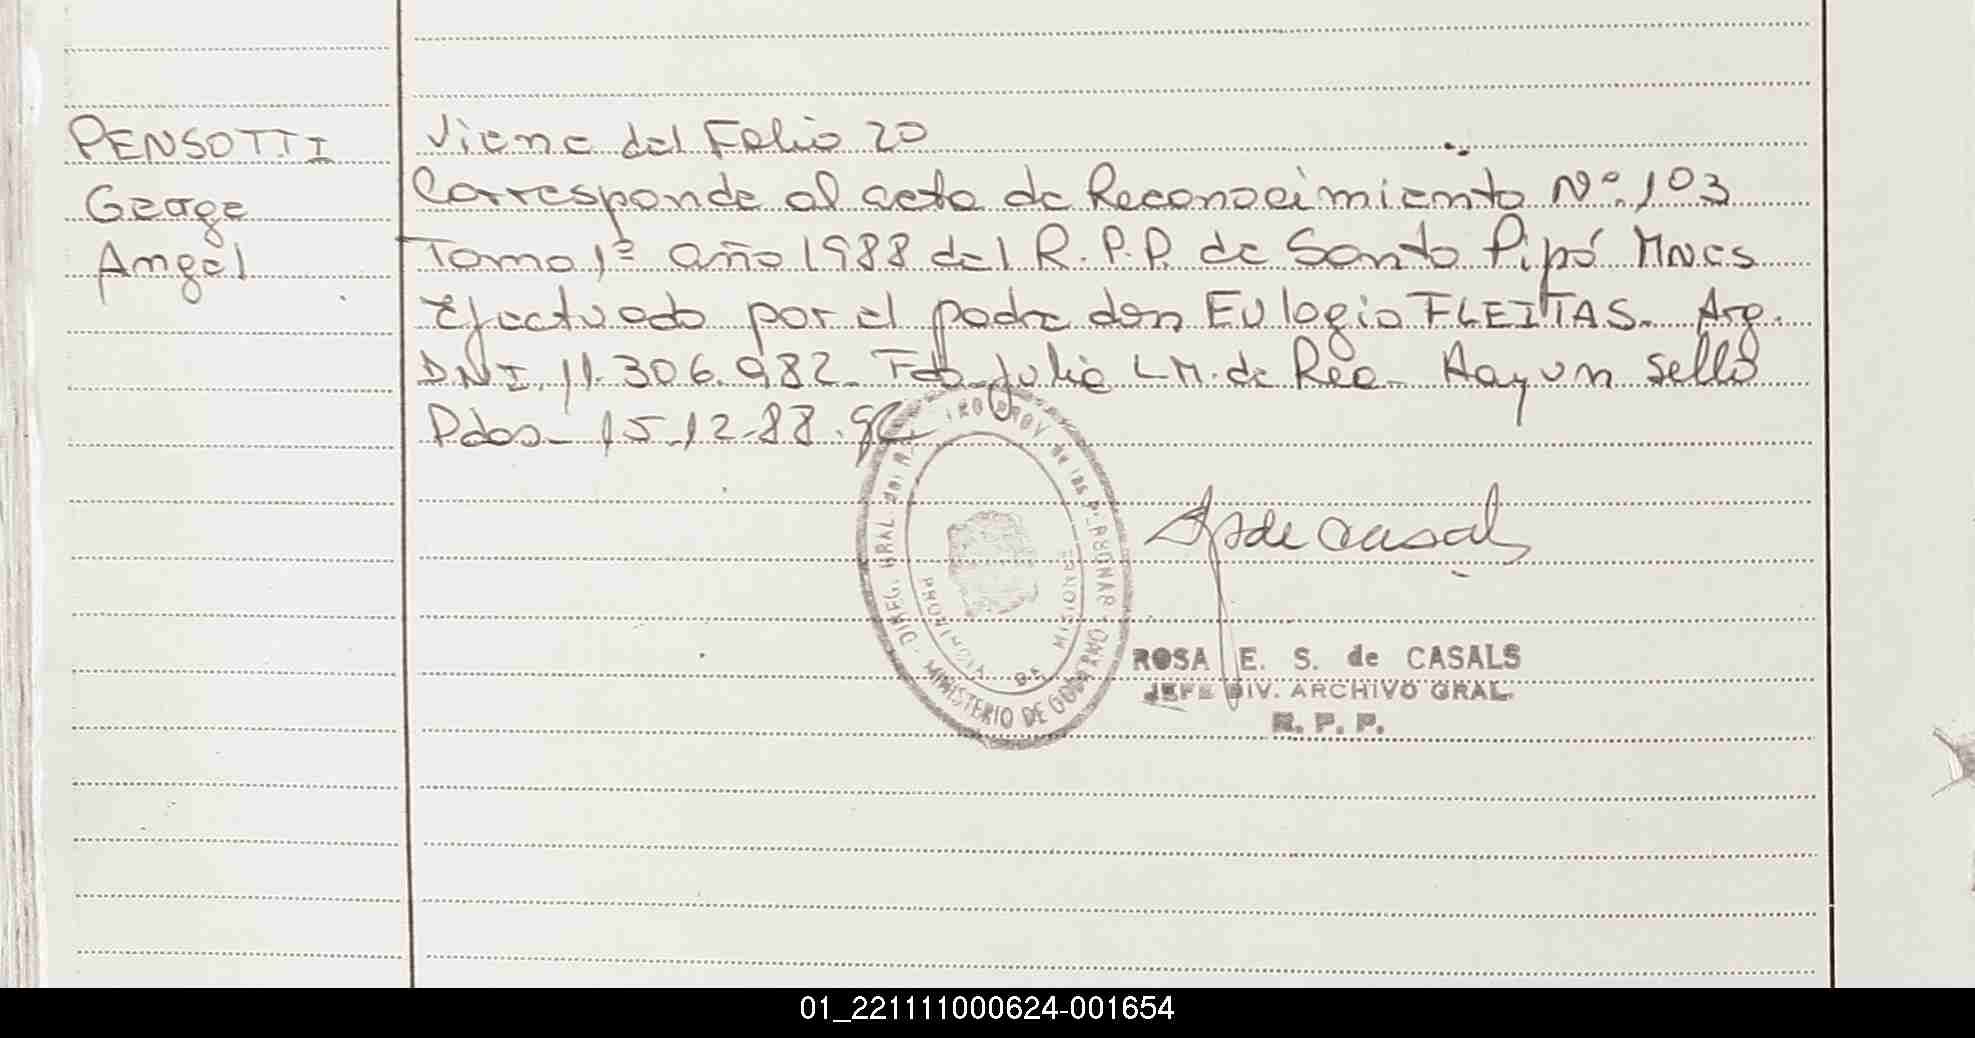 PENSOTTI
George
Angel
Viene del Folio 20
Corresponde al acta de Reconocimiento Nº 103
Tomo 1º año 1988 del R.P.P. de Santo Pipó Mnes
Efectuado por el padre don Eulogio FLEITAS. Arg.
DNI. 11.306.982. Fdo. Julia L.M. de Rea. Hay un sello
Pdas. 15.12.88.
de Casals
DIREG. GRAL. del PROV. de las
MINISTERIO DE GOBIERNO
PROVINCIA DE MISIONES
ROSA E. S. de CASALS
JEFE DIV. ARCHIVO GRAL.
R. P. P.
01_221111000624-001654